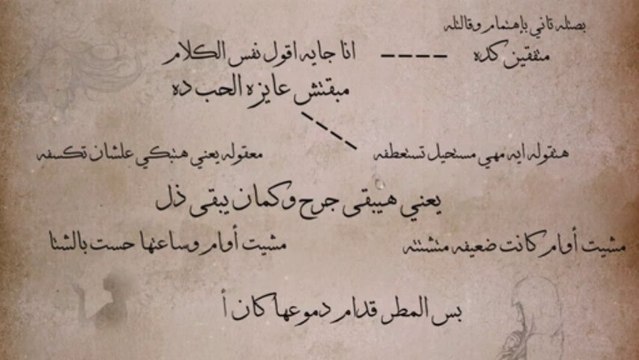 بصتله تاني بإهتمام وقالتله
متفقين كده ---- انا جايه اقول نفس الكلام
مبقتش عايزه الحب ده
هتقوله ايه مهي مستحيل تستعطفه معقوله يعني هتبكي علشان تكسفه
يعني هيبقى جرح وكمان يبقى ذل
مشيت أوام كانت ضعيفه متشتته مشيت أوام وساعتها حست بالشتا
بس المطر قدام دموعها كان أ